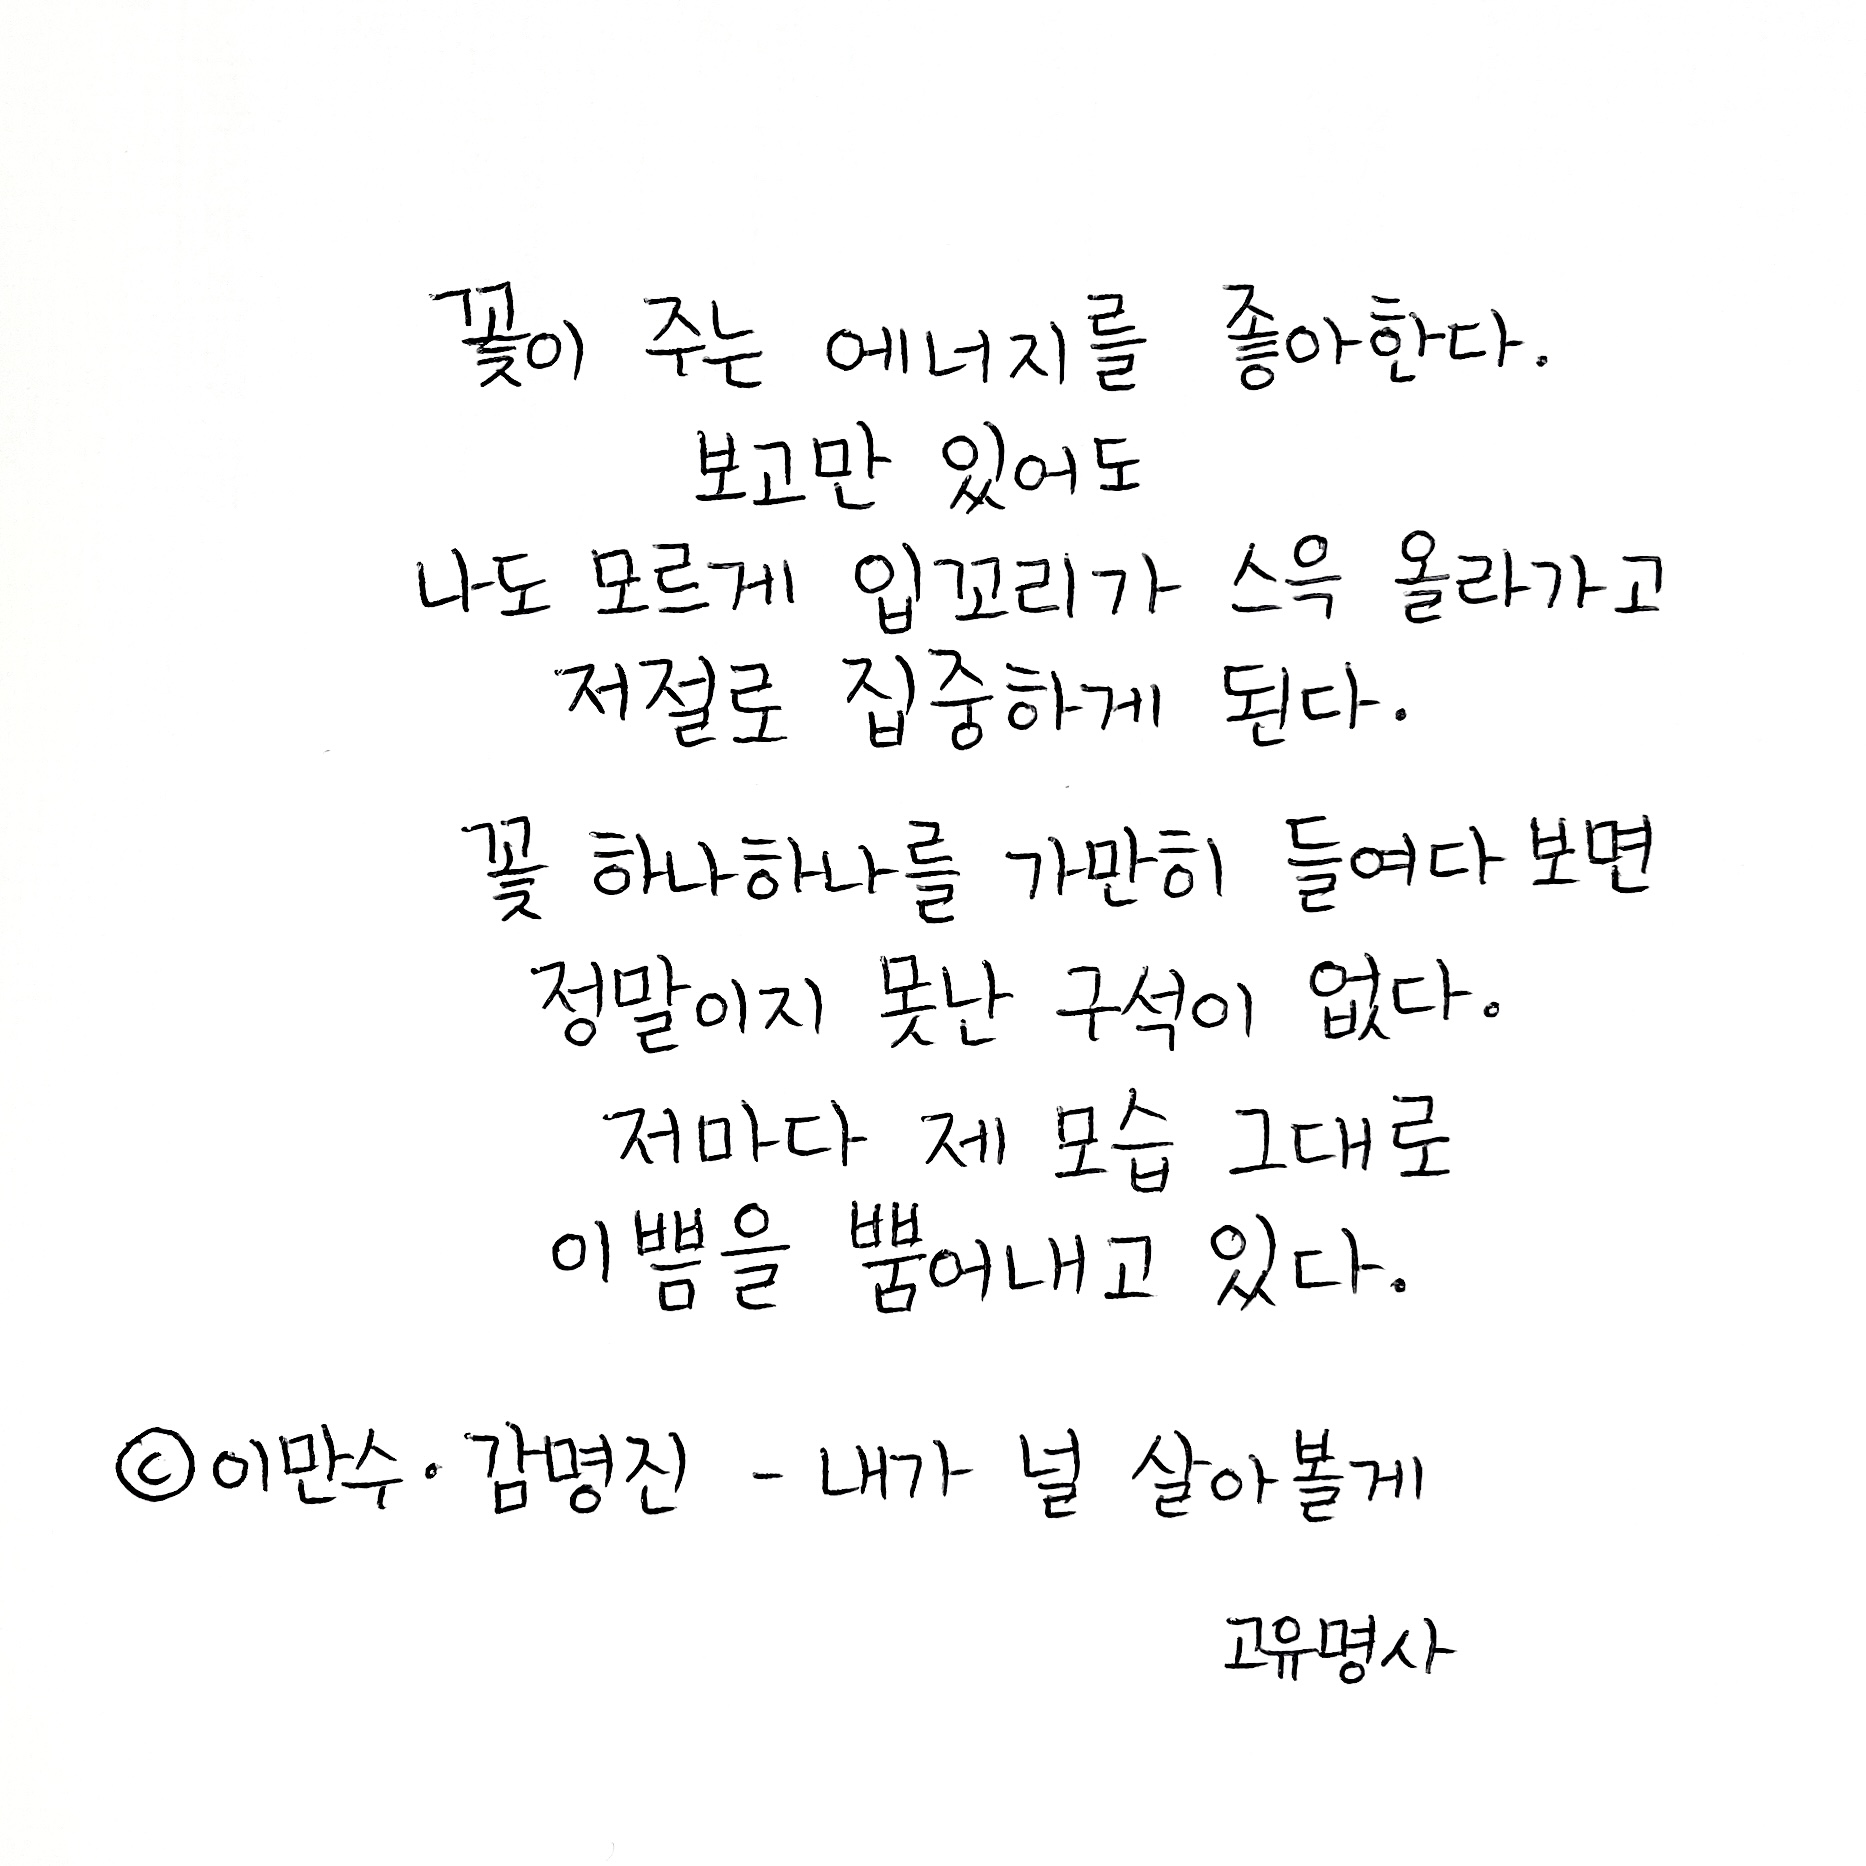 꽃이 주는 에너지를 좋아한다.
보고만 있어도
나도 모르게 입꼬리가 스윽 올라가고
저절로 집중하게 된다.
꽃 하나하나를 가만히 들여다보면
정말이지 못난 구석이 없다.
저마다 제 모습 그대로
이쁨을 뿜어내고 있다.
ⓒ이만수·감명진 - 내가 널 살아볼게
고유명사